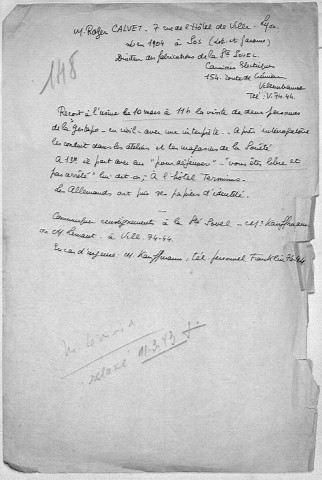 M. Roger CALVET. 7 rue de l'Hôtel de Ville. Lyon.
né en 1904 à Sos (Lot et Garonne)
Directeur des fabrications de la Sté SOVEL.
Camions Electriques
154. route de Crémieu
Villeurbanne
Tél: V. 74.44.
148
Reçoit à l'usine le 10 mars à 11h la visite de deux personnes
de la Gestapo - en civil - avec une interprète. Après interrogatoire
les conduit dans les ateliers et les magasins de la Société
A 13h il part avec eux "pour déjeuner" - "vous êtes libre et
pas arrêté" lui dit-on, à l'hôtel Terminus.
Les Allemands ont pris ses papiers d'identité.
Communiquer renseignements à la Sté Sovel - Mr Kauffmann
ou M. à Vill. 74-44.
En cas d'urgence: M. Kauffmann, tél. personnel Franklin
relaxé 11.3.43